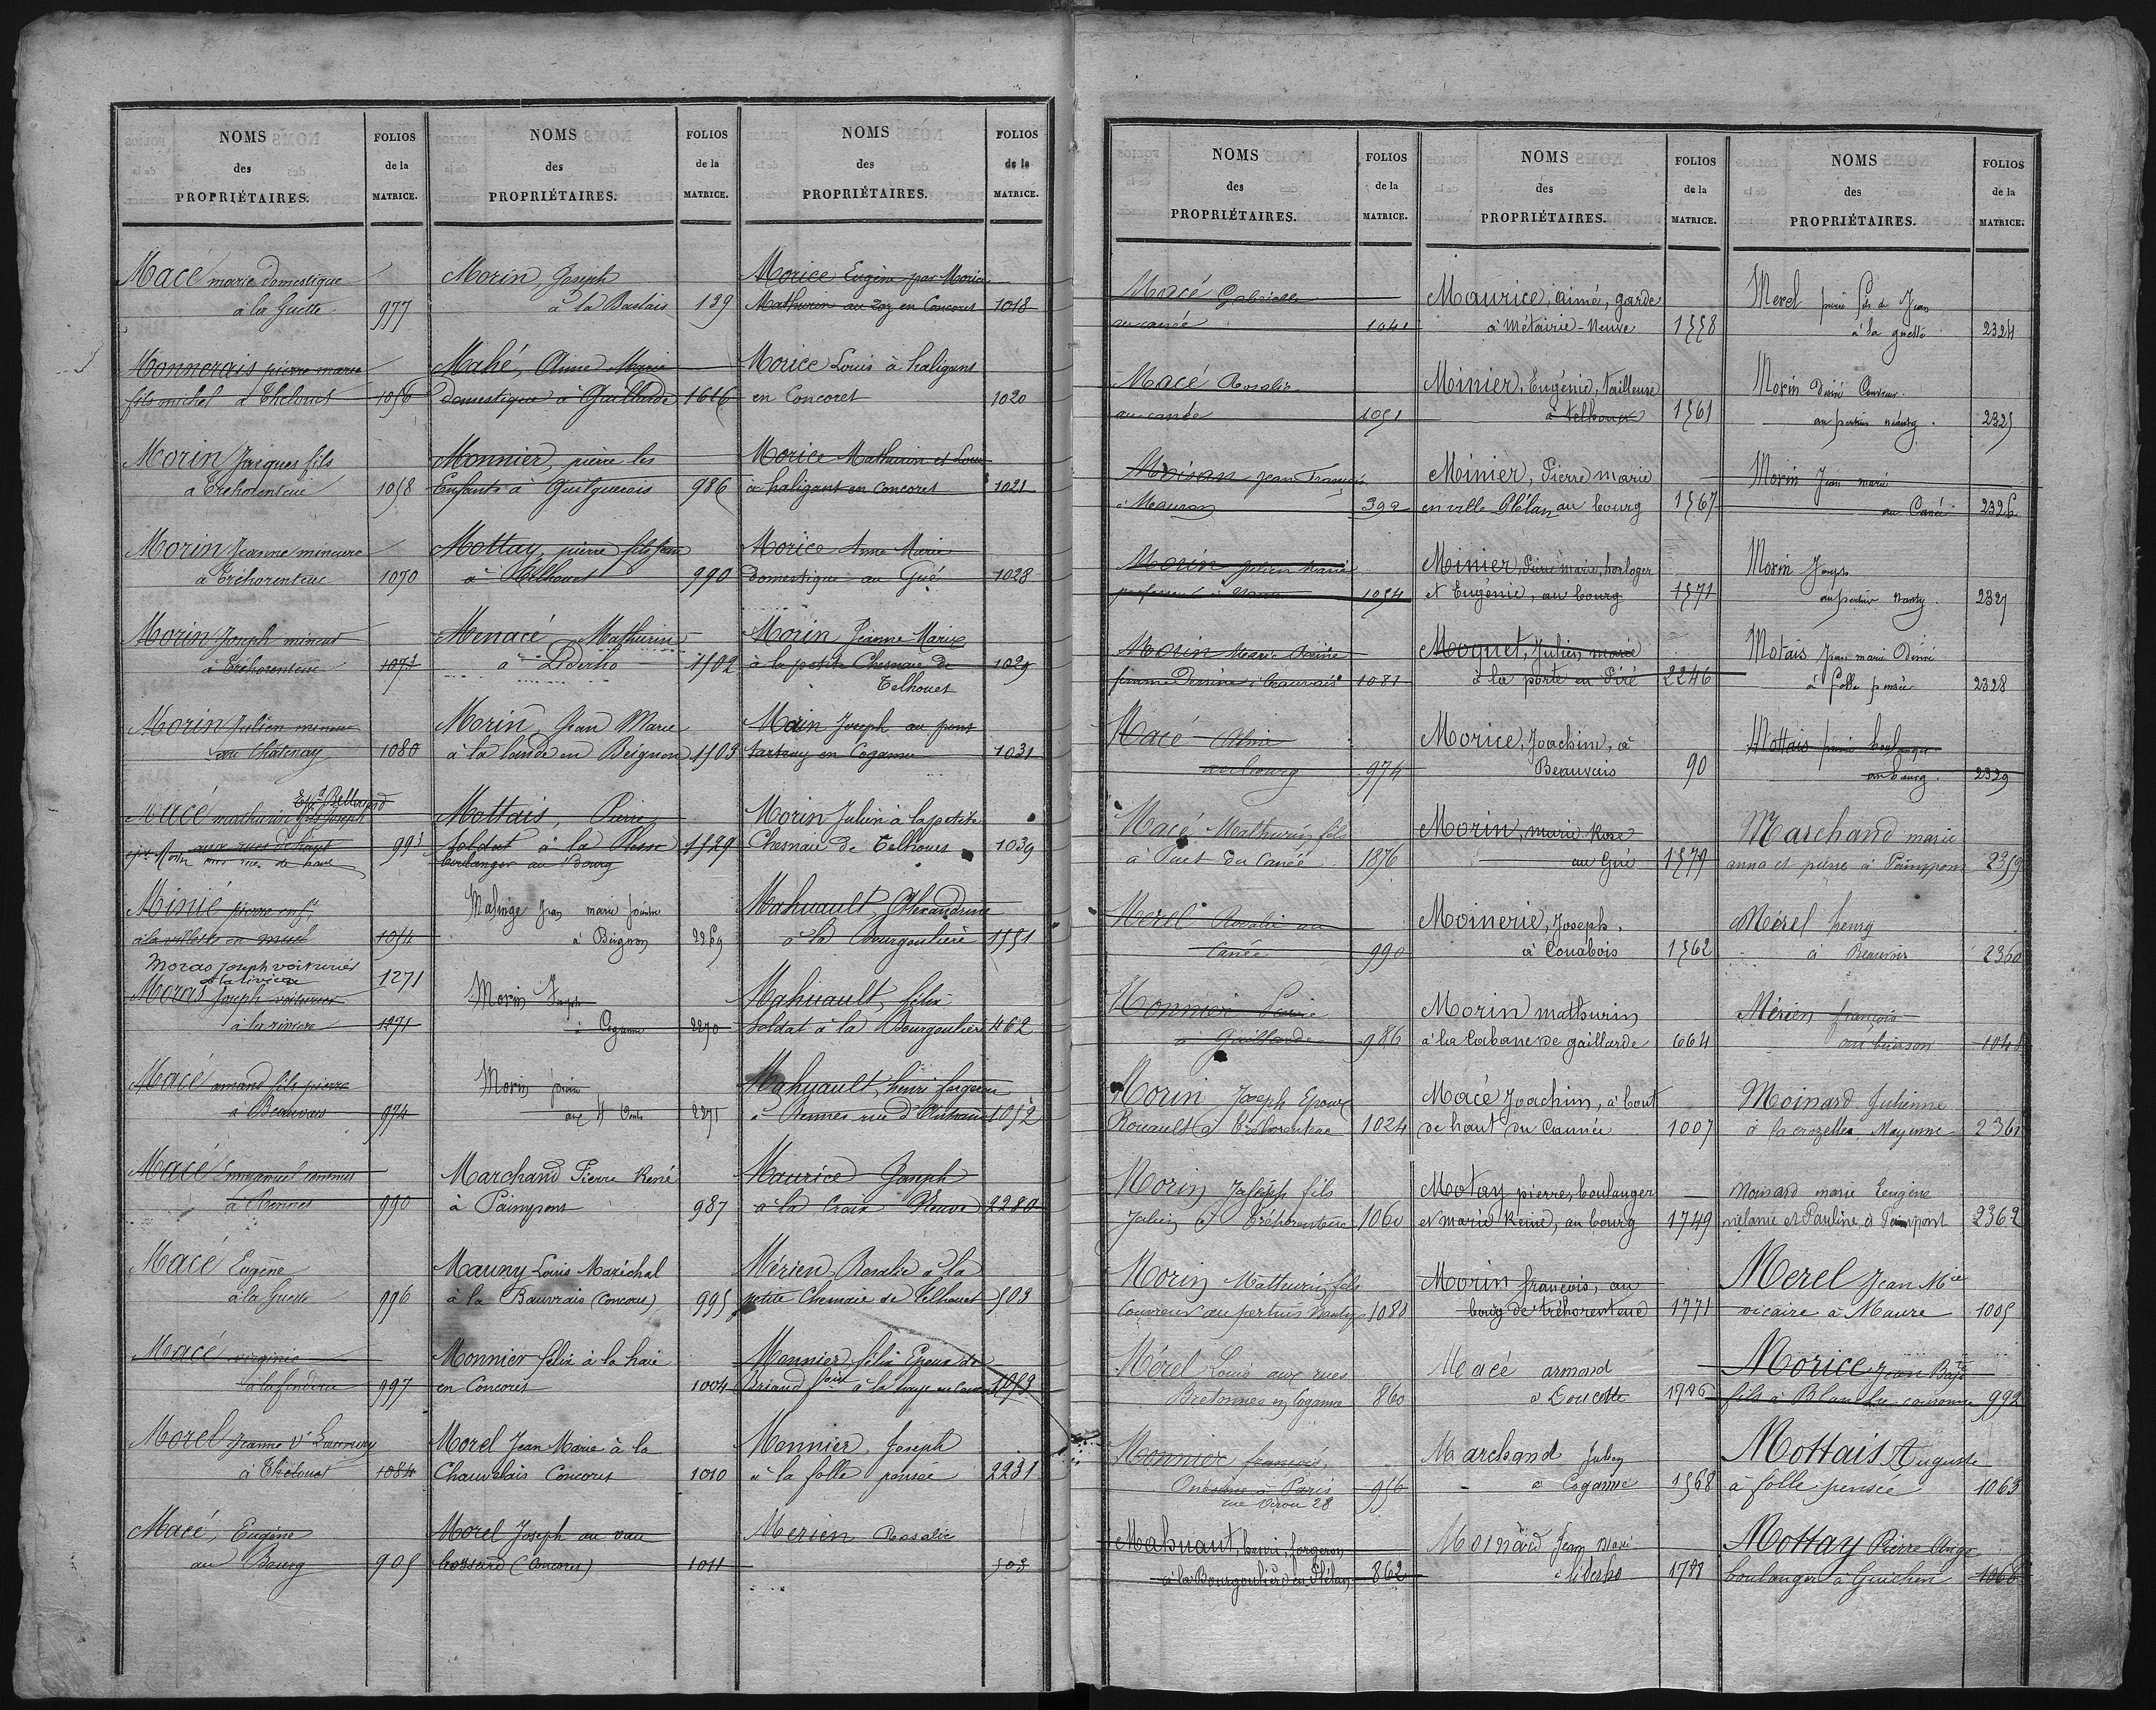 NOMS
des
PROPRIÉTAIRES.
FOLIOS
de la
MATRICE.
Macé marie domestique
à la Guette 977
Monnerais pierre marie
fils michel à Thélouet 1056
Morin Jacques fils
à Tréhorenteuc 1058
Morin Jeanne mineure
à Tréhorenteuc 1070
Morin Joseph mineur
à Tréhorenteuc 1071
Morin Julien mineur
au Chatenay 1080
Macé mathurin fils Joseph
aux rues de haut 991
Minié pierre
à la villette en 1054
Moras Joseph voiturier
à la rivière 1271
Moras Joseph voiturier
à la rivière 1271
Macé amand fils pierre
à Beauvais 974
Macé Emmanuel
à Rennes 990
Macé Eugène
à la Guette 996
Macé virginie
997
Morel Jeanne Ve
à Thélouet 1084
Macé, Eugène
au Bourg 905
NOMS
des
PROPRIÉTAIRES.
FOLIOS
de la
MATRICE.
Morin, Joseph
139
Mahé, Anne Marie
domestique à Gaillarde 1616
Monnier, pierre les
Enfants à 986
Mottay, pierre fils Jean
à Telhouet 990
Menacé Mathurin
à Liderho 1502
Morin Jean Marie
à la lande en Beignon 1503
Mottais, Pierre
soldat à la 1529
boulanger au Bourg
Malinge Jean marie
à Beignon 2269
Morin Joseph
à 2270
Morin
aux 4 Vents 2271
Marchand Pierre René
à Paimpont 987
Mauny Louis Maréchal
à la Bauvrais (Concoret) 995
Monnier félix à la haie
en Concoret 1004
Morel Jean Marie à la
Chauvelais Concoret 1010
Morel Joseph au vau
bossard (Concoret) 1011
NOMS
des
PROPRIÉTAIRES.
FOLIOS
de la
MATRICE.
Morice Eugène par Morice
Mathurin au en Concoret 1018
Morice Louis à haligant
en Concoret 1020
Morice Mathurin et Louis
à haligant en Concoret 1021
Morice Anne Marie
domestique au Gué 1028
Morin Jeanne Marie
à la petite Chesnaie de 1029
Telhouet
Morin Joseph au pont
en 1031
Morin Julien à la petite
Chesnaie de Telhouet 1039
Mahuault, Alexandrine
à la Bourgoulière 1551
Mahuault, félix
soldat à la Bourgoulière 462
Mahuault, henri forgeron
à Rennes rue d'Antrain 1052
Maurice Joseph
à la Croix Neuve 2280
Mérien Rosalie à la
petite Chesnaie de Telhouet 503
Monnier félix Epoux de
Briand à la haye en Concoret 1053
Monnier, Joseph
à la folle pensée 2231
Merien Rosalie
503
NOMS
des
PROPRIÉTAIRES.
FOLIOS
de la
MATRICE.
Macé Gabrielle
au canée 1041
Macé Rosalie
au canée 1051
Moisan Jean François
à Mauron 392
Morin Julien marie
1054
Morin Marie
femme à Beauvais 1081
Macé
au bourg 974
Macé Mathurin fils
à du Canée 1876
Morel Rosalie au
Canée 990
Monnier
à Gaillarde 986
Morin Joseph Epoux
Rouault à Tréhorenteuc 1024
Morin Joseph fils
Julien à Tréhorenteuc 1060
Morin Mathurin fils
couvreur au pertuis Nanty 1080
Mérel Louis aux rues
Bretonnes en 860
Monnier françois,
à Paris 956
rue 28
Mahuaut, henri, forgeron
à la Bourgoulière en Plélan 862
NOMS
des
PROPRIÉTAIRES.
FOLIOS
de la
MATRICE.
Maurice, aimé, garde
à Métairie-Neuve 1558
Minier, Eugénie, tailleuse
à Telhouet 1561
Minier, Pierre marie
en ville Plélan au bourg 1567
Minier, Pierre marie, horloger
et Eugénie, au bourg 1571
Moquet, Julien marie
à la porte en Piré 2246
Morice, Joachim, à
Beauvais 90
Morin, marie Rose
au Gué 1579
Moinerie, Joseph,
à Couabois 1562
Morin mathurin
à la Cabane de gaillarde 664
Macé Joachim, à bout
de haut du Cannée 1007
Motay pierre, boulanger
et marie Reine, au bourg 1749
Morin françois, au
bourg de tréhorenteuc 1771
Macé armand
à Doucette 1786
Marchand Julien
à 1568
Moinard Jean Marie
à lidesho 1788
NOMS
des
PROPRIÉTAIRES.
FOLIOS
de la
MATRICE.
Merel fils de Jean
à la guette 2324
Morin Désiré Couvreur
au pertuis néanty 2325
Morin Jean marie
au Canée 2326
Morin Joseph
au pertuis Nanty 2327
Motais Jean marie Désiré
à folle pensée 2328
Mottais boulanger
au bourg 2329
Marchand marie
anna et pierre à Paimpont 2359
Mérel henry
à Beauvais 2360
Mérien françois
au buisson 1048
Moinard Julienne
à la crozette, Mayenne 2361
Moinard marie Eugène
mélanie et Pauline, à Paimpont 2362
Merel Jean Mie
vicaire à Maure 1005
Morice Jean Bapte
fils à Blanche-couronne 992
Mottais Auguste
à folle pensée 1063
Mottay Pierre Ange
boulanger à Guichen 1068